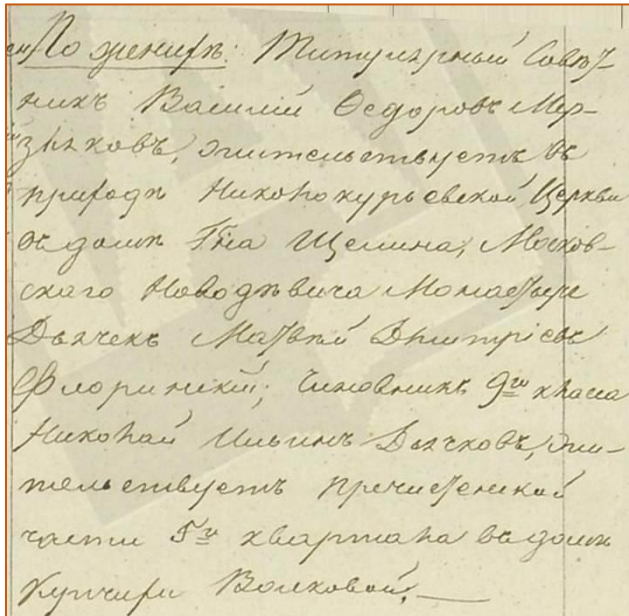 По женихѣ: Титулярный Совѣт-
никъ Василій Ѳедоровъ Мер-
зляковъ, жительствуетъ въ
приходѣ Николохурьевской Церкви
въ домѣ Гна Щепина, Москов-
скаго Новодѣвича Монастыря
Дьячекъ Матвѣй Дмитріевъ
Флоринскій; Чиновникъ 9го класса
Николай Ильинъ Дьячковъ, жи-
тельствуетъ Пречистенской
части 5го квартала въ домѣ
Купчихи Волковой.